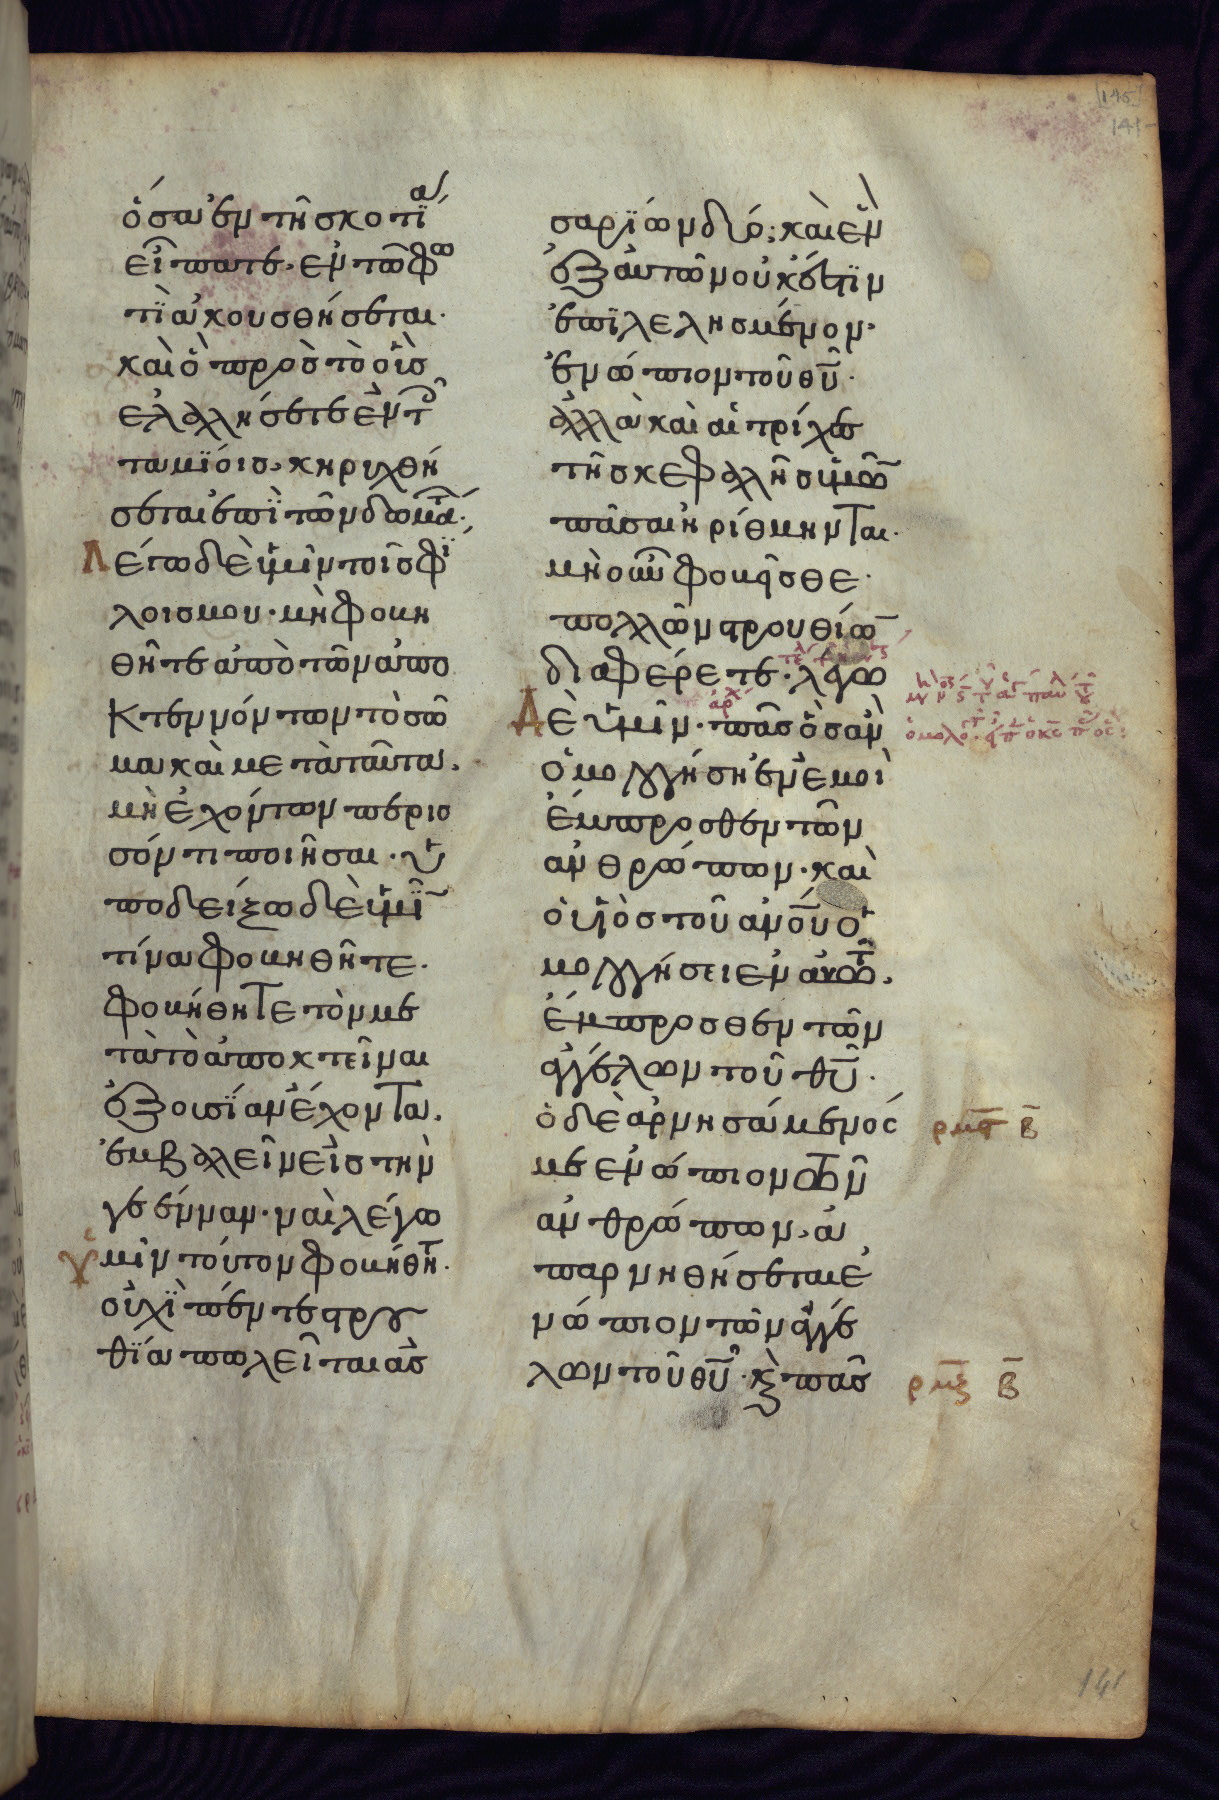 ὅσα ἐν τῆ σκοτΐα
εἴπατε· ἐν τῶ φω
τὶ ἀκουσθήσεται·
καὶ ὃ πρὸς τὸ οὖς
ἐλαλήσατε ἐν τοῖς
ταμϊείοις· κηρυχθή
σεται ἐπὶ τῶν δωμάτ·
Λέγω δὲ ὑμῖν τοῖς φΐ
λοις μου· μὴ φοβη
θῆτε ἀπὸ τῶν ἀπο
κτεννόντων τὸ σῶ
μα καὶ μετὰ ταῦτα·
μὴ ἐχόντων περισ
σόν τι ποιῆσαι· ὑ
ποδείξω δὲ ὑμῖ
τίνα φοβηθῆτε·
φοβήθητε τὸν με
τὰ τὸ ἀποκτεῖναι
ἐξουσΐαν ἔχοντα·
ἐμβαλεῖν εἰς τὴν
γεένναν· ναὶ λέγω
ὑμῖν τοῦτον φοβήθητ·
οὐχὶ πέντε στρου
θΐα πωλεῖται ἀσ
σαρΐων δύο; καὶ ἓν
ἐξ αὐτῶν οὐκ ἔστιν
ἐπϊλελησμένον·
ἐνώπιον τοῦ θῦ·
ἀλλὰ καὶ αἱ τρίχες
τῆς κεφαλῆς ὑμῶ
πᾶσαι ἠρίθμηνται·
μὴ οὖν φοβεῖσθε·
πολλῶν στρουθίω
διαφέρετε· λέγω
Δὲ ὑμῖν· πᾶς ὃς ἂν
ὁμολογήση ἐν ἐμοὶ
ἔμπροσθεν τῶν
ἀνθρώπων· καὶ
ὁ υἱὸς τοῦ ἀνου ὁ
μολογήσει ἐν αὐτῶ·
ἔμπροσθεν τῶν
ἀγγέλων τοῦ θῦ·
ὁ δὲ ἀρνησάμενός ρμϛ β
με ἐνώπιον τῶν
ἀνθρώπων· ἀ
παρνηθήσεται ἐ
νώπιον τῶν ἀγγέ
λων τοῦ θῦ· κὲ πᾶς ρμζ β
141